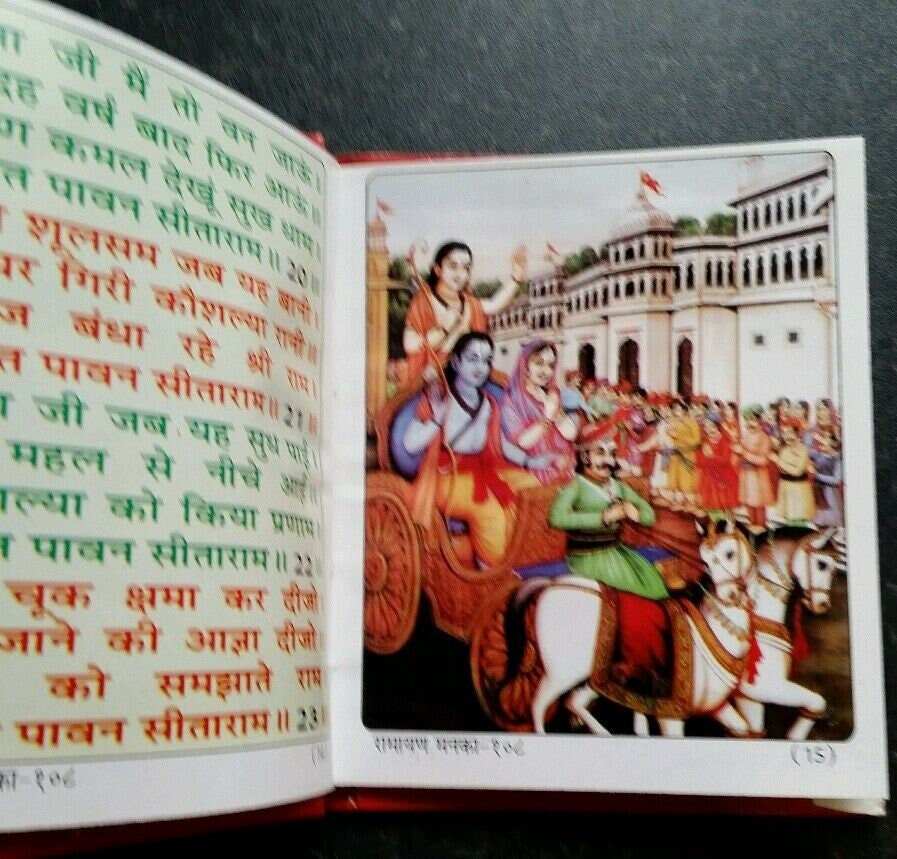 जी मैं तो वन जाऊं।
वर्ष बाद फिर आऊं॥
कमल देखूं सुख धाम।
पावन सीताराम॥ 20॥
शूलसम जब यह बानी।
गिरी कौशल्या रानी॥
बंधा रहे श्री राम।
पावन सीताराम॥ 21॥
जी जब यह सुध पाई।
महल से नीचे आई॥
को किया प्रणाम।
पावन सीताराम॥ 22॥
चूक क्षमा कर दीजो।
जाने की आज्ञा दीजो॥
को समझाते राम
पावन सीताराम॥ 23॥
-१०८
रामायण मनका-१०८
(15)